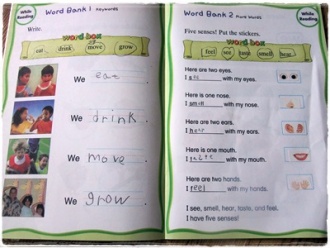 While Reading
Word Bank 1 Keywords
Write.
word box
eat drink move grow
We eat.
We drink.
We move.
We grow.
While Reading
Word Bank 2 More Words
Five senses! Put the stickers.
word box
feel see taste smell hear
Here are two eyes.
I see with my eyes.
Here is one nose.
I smell with my nose.
Here are two ears.
I hear with my ears.
Here is one mouth.
I taste with my mouth.
Here are two hands.
I feel with my hands.
I see, smell, hear, taste, and feel.
I have five senses!